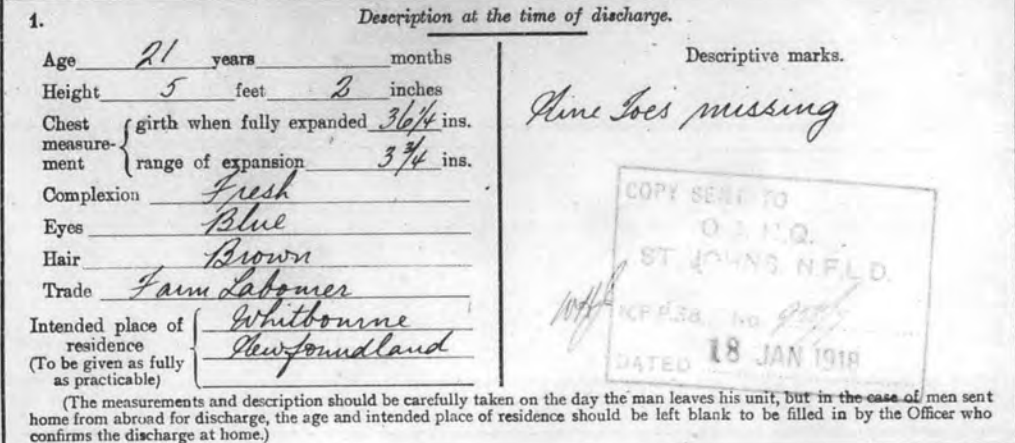 1. Description at the time of discharge.
Age 21 years months
Height 5 feet 2 inches
Chest measure-ment { girth when fully expanded 36 1/4 ins.
range of expansion 3 3/4 ins.
Complexion Fresh
Eyes Blue
Hair Brown
Trade Farm Labourer
Intended place of residence (To be given as fully as practicable) { Whitbourne
Newfoundland
Descriptive marks.
Nine Toes missing
COPY SENT TO
ST JOHNS N.F.L.D.
N.F.P. 38. No
DATED 18 JAN 1918
(The measurements and description should be carefully taken on the day the man leaves his unit, but in the case of men sent
home from abroad for discharge, the age and intended place of residence should be left blank to be filled in by the Officer who
confirms the discharge at home.)